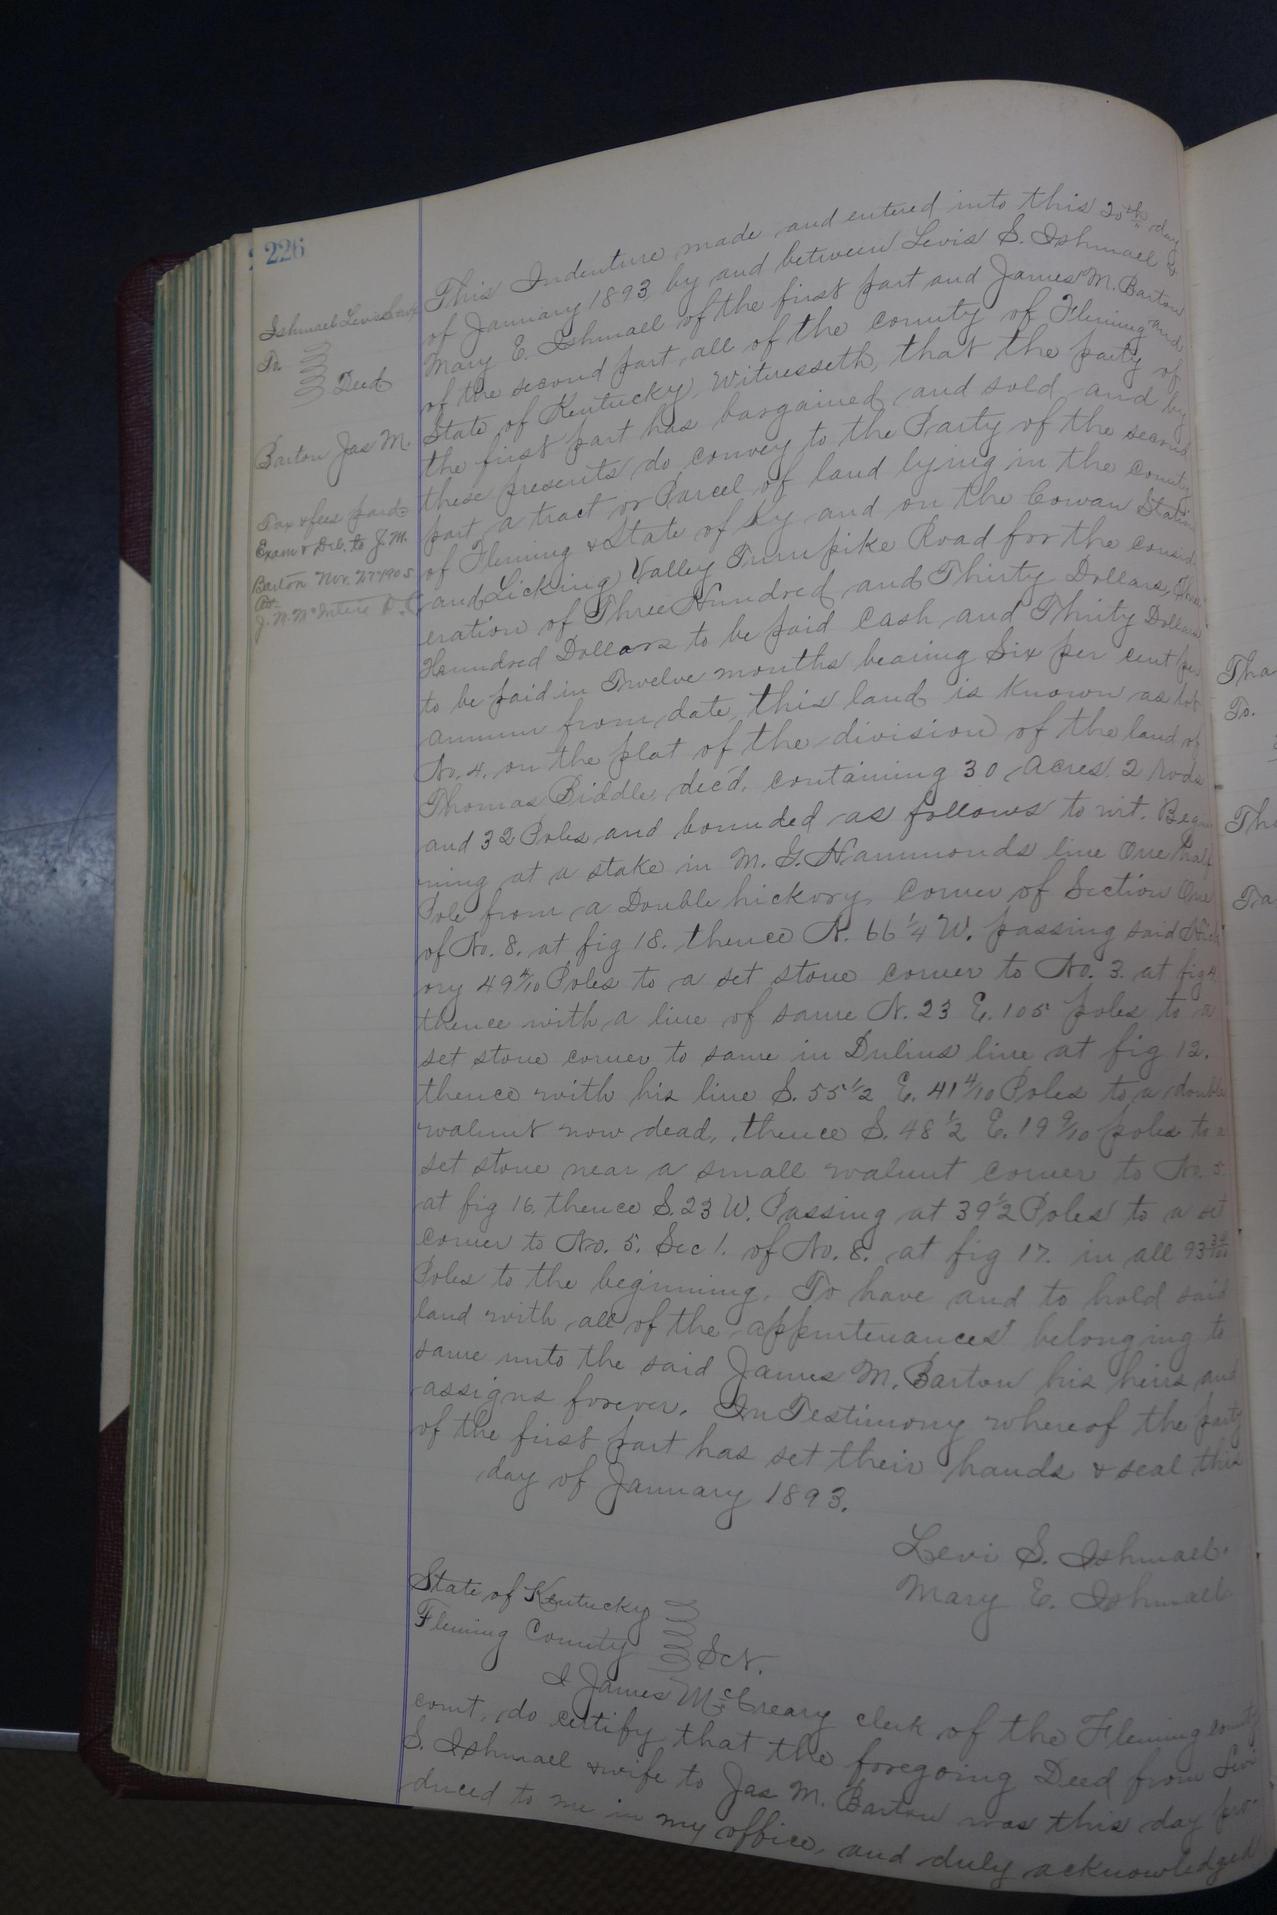 226
Ishmael Levi S &c
To
Deed
Barton Jas M.
Tax & fees paid
Exam & Del. to J. M.
Barton Nov. 27 1905
Att.
J. N. McIntire D. C.
This Indenture made and entered into this 20th day
of January 1893, by and between Levis S. Ishmael &
Mary E. Ishmael of the first part and James M. Barton
of the second part, all of the county of Fleming and
State of Kentucky, Witnesseth, that the party of
the first part has bargained and sold and by
these presents do convey to the Party of the second
part a tract or Parcel of land lying in the county
of Fleming & State of Ky and on the Cowan Station
and Licking Valley Turnpike Road for the consid-
eration of Three Hundred and Thirty Dollars, Three
Hunndred Dollars to be paid Cash and Thirty Dollars
to be paid in Twelve months bearing Six per cent per
annum from date, this land is known as lot
No. 4. on the plat of the division of the land of
Thomas Biddle, decd, containing 30 Acres 2 Rods
and 32 Poles and bounded as follows to wit. Begin
ning at a stake in M. G. Hammonds line One half
Pole from a Double hickory, corner of Section One
of No. 8. at fig 18. thence N. 66 1/4 W. passing said Hick
ory 49 4/10 Poles to a set stone corner to No. 3. at fig 4.
thence with a line of same N. 23 E. 105 poles to a
set stone corner to same in Dulins line at fig 12.
thence with his line S. 55 1/2 E. 41 4/10 Poles to a double
walnut now dead, thence S. 48 1/2 E. 19 9/10 poles to a
set stone near a small walnut corner to No. 5.
at fig 16. thence S. 23 W. Passing at 39 1/2 Poles to a set
corner to No. 5. Sec 1. of No. 8. at fig 17. in all 93
Poles to the beginning. To have and to hold said
land with all of the appurtenances belonging to
same unto the said James M. Barton his heirs and
assigns forever. In Testimony whereof the party
of the first part has set their hands & seal this
day of January 1893.
Levi S. Ishmael.
Mary E. Ishmael
State of Kentucky
Fleming County Sct.
I James McCreary clerk of the Fleming County
court, do certify that the foregoing Deed from Levi
S. Ishmael & wife to Jas M. Barton was this day pro-
duced to me in my office, and duly acknowledged
Tha
To.
The
Ta